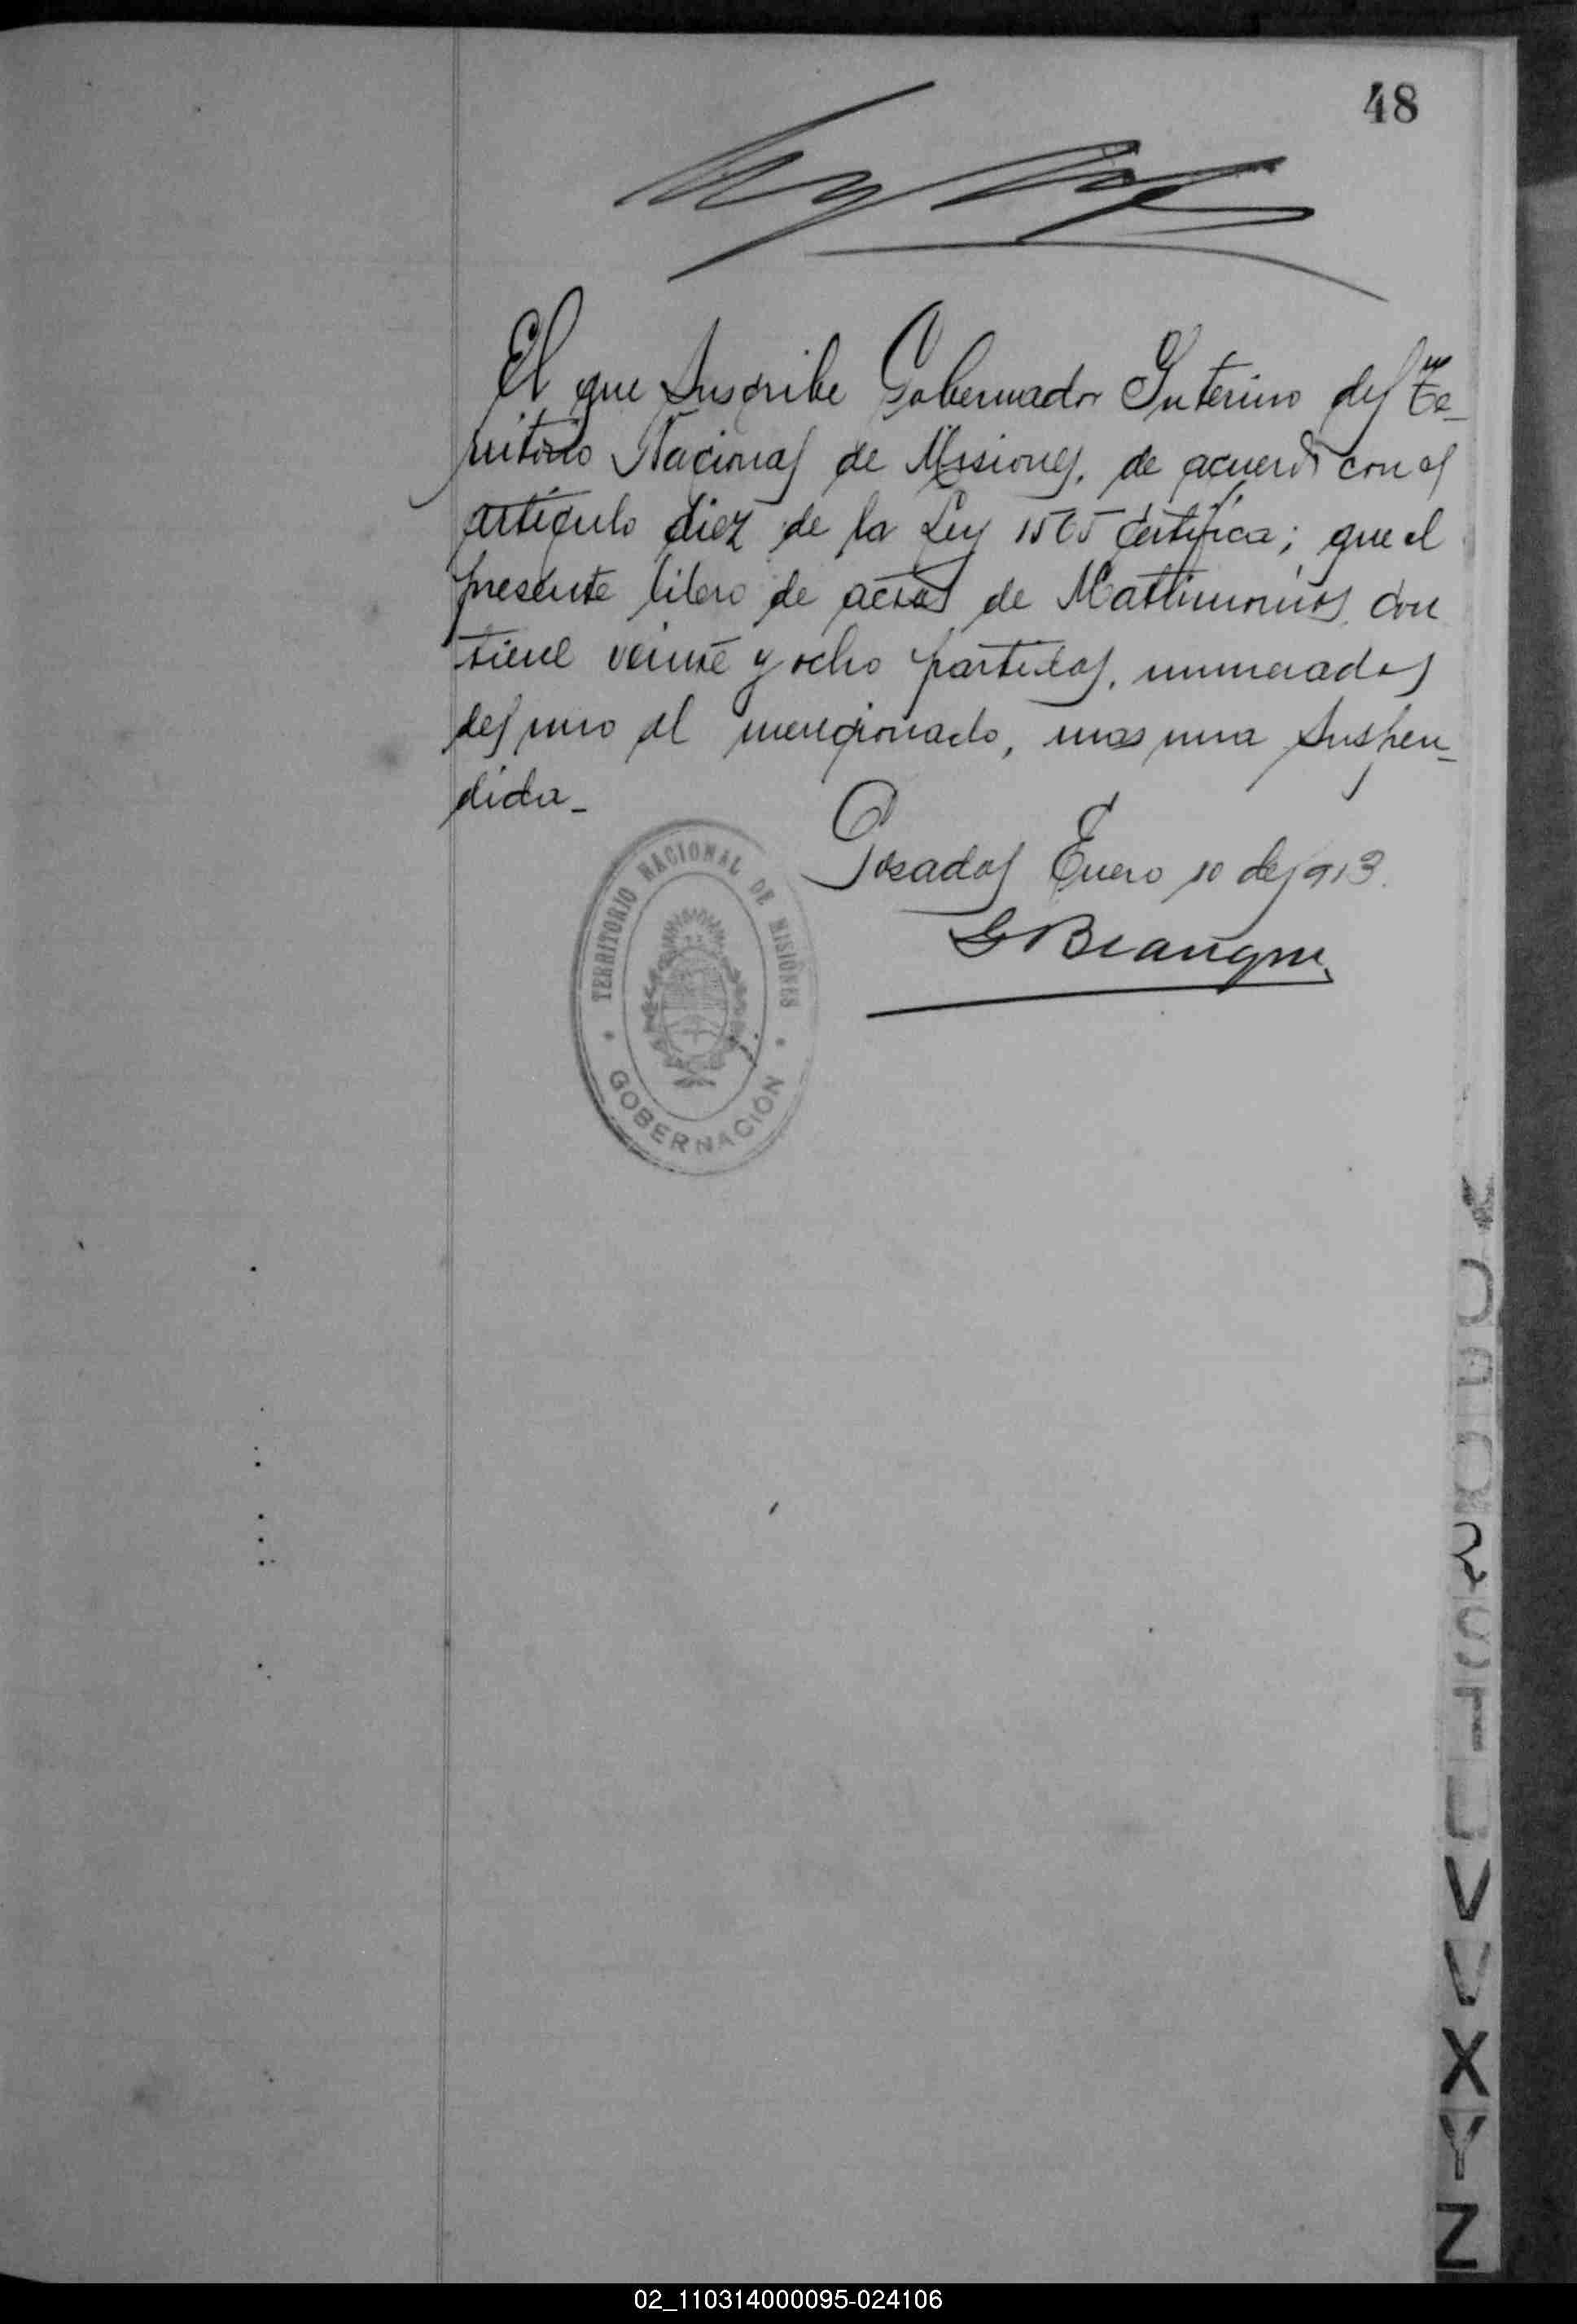 48
El que suscribe Gobernador Interino del Te-
rritorio Nacional de Misiones, de acuerdo con el
artículo diez de la Ley 1565 certifica; que el
presente libro de actas de Matrimonios, con
tiene veinte y ocho partidas, numeradas
del uno al mencionado, mas una suspen-
dida_
Posadas Enero 10 de 1913.
TERRITORIO NACIONAL DE MISIONES
GOBERNACIÓN
V
V
X
Y
Z
02_110314000095-024106